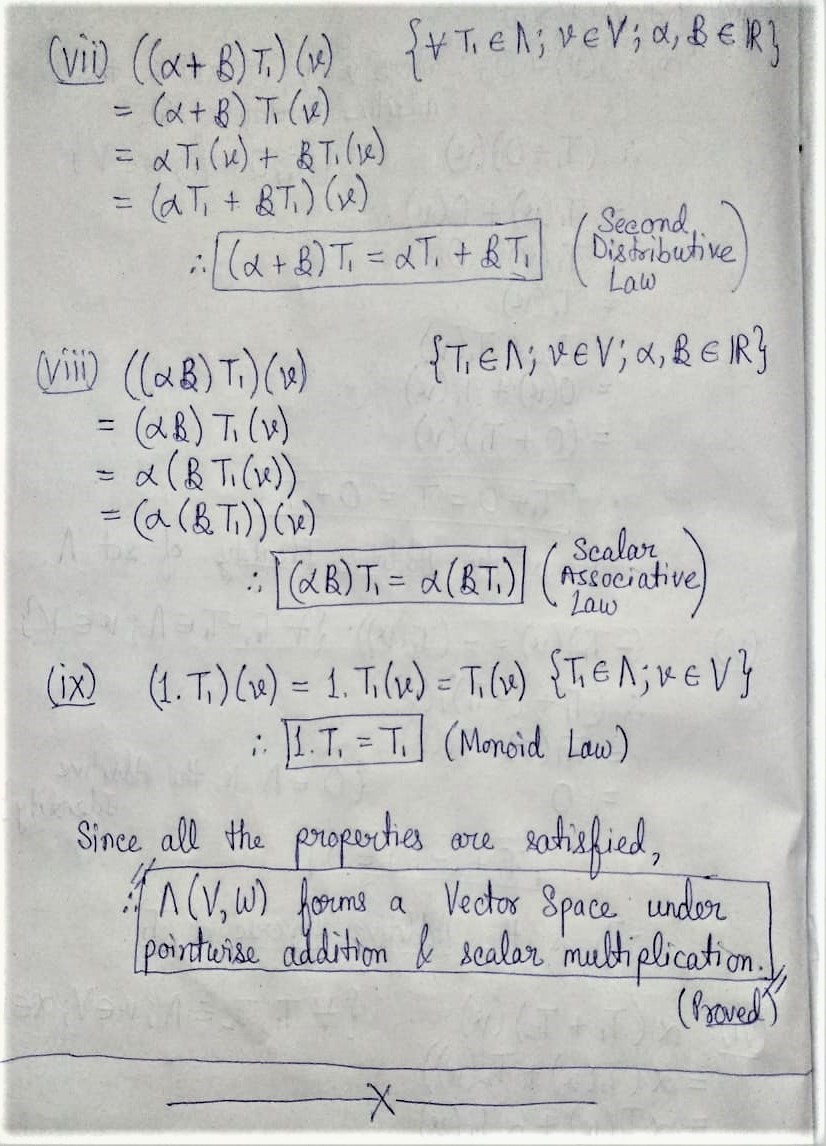 (vii) ((α+β)T₁)(v) {∀ T₁ ∈ Λ; v ∈ V; α, β ∈ ℝ}
= (α+β) T₁(v)
= αT₁(v) + βT₁(v)
= (αT₁ + βT₁)(v)
∴ (α+β)T₁ = αT₁ + βT₁ (Second Distributive Law)
(viii) ((αβ)T₁)(v) {T₁ ∈ Λ; v ∈ V; α, β ∈ ℝ}
= (αβ) T₁(v)
= α(βT₁(v))
= (α(βT₁))(v)
∴ (αβ)T₁ = α(βT₁) (Scalar Associative Law)
(ix) (1.T₁)(v) = 1.T₁(v) = T₁(v) {T₁ ∈ Λ; v ∈ V}
∴ 1.T₁ = T₁ (Monoid Law)
Since all the properties are satisfied,
∴ Λ(V,W) forms a Vector Space under
pointwise addition & scalar multiplication.
(Proved)
X